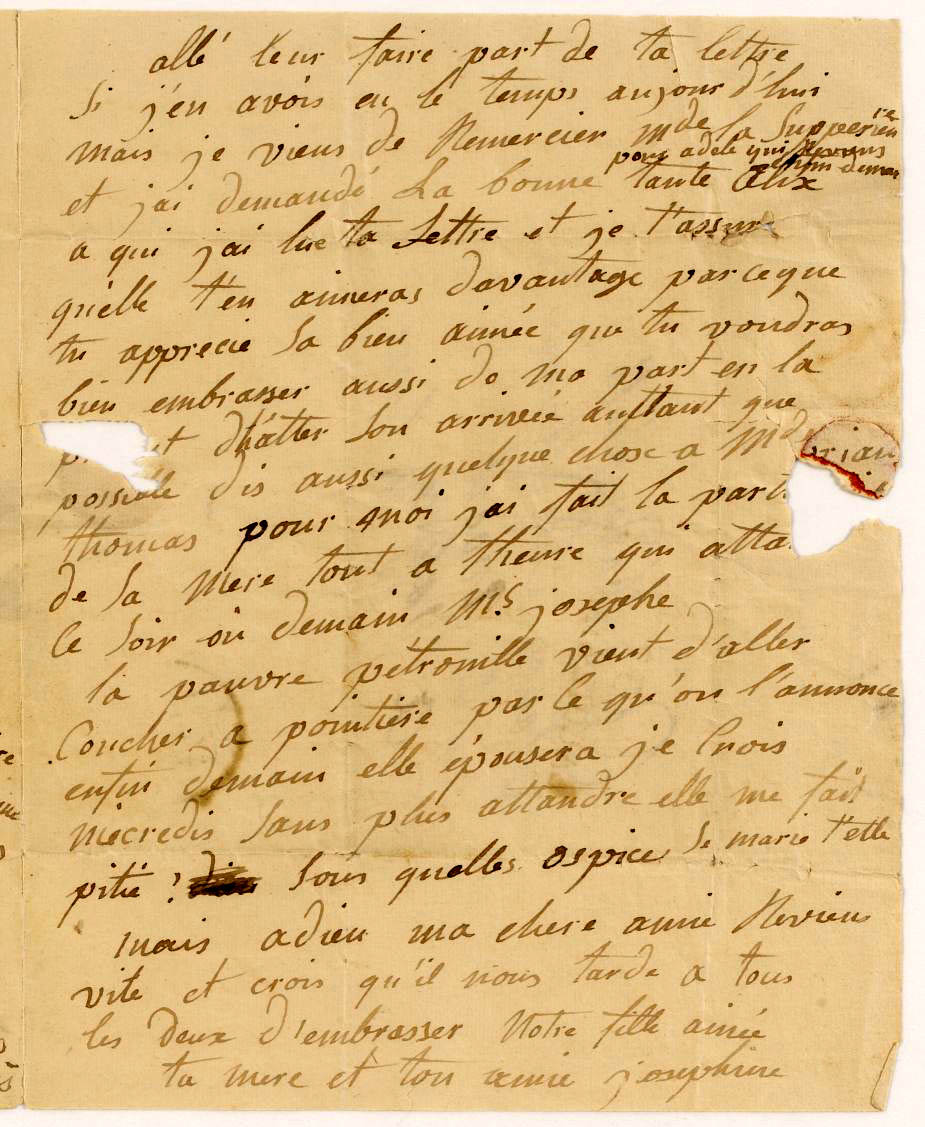 allé leur faire part de ta lettre
Si j'en avois eu le temps aujourd'hui
mais je viens de Remercier Mde la Supperieure
pour adele qui Reviens
demain
et j'ai demandé La bonne tante Alix
a qui j'ai lue ta Lettre et je t'assure
qu'elle t'en aimeras davantage parceque
tu apprecie Sa bien aimée que tu voudras
bien embrasser aussi de ma part en la
d'hâtter Son arrivée auttant que
possible dis aussi quelque chose a Md
thomas pour moi j'ai fait la part
de Sa Mere tout a l'heure qui atta
ce Soir ou demain Mr josephe
la pauvre pétronille vient d'aller
Coucher a pointiere par ce qu'on l'annonce
enfin demain elle épousera je Crois
mecredis Sans plus attandre elle me fait
pitié ! Sous quelles ospices Se marie t'elle
mais adieu ma chere amie Reviens
vite et crois qu'il nous tarde a tous
les deux d'embrasser Notre fille aimée
ta mere et ton amie josephine